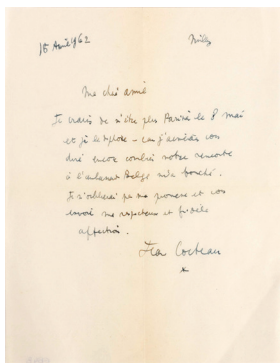 15 Avril 1962 Milly
Ma chère amie
Je crains de n'être plus à Paris le 8 mai
et je le déplore - car j'aimerais vous
dire encore combien notre rencontre
à l'ambassade Belge m'a touché.
Je n'oublierai pas ma promesse et vous
envoie ma respectueuse et fidèle
affection.
Jean Cocteau
*